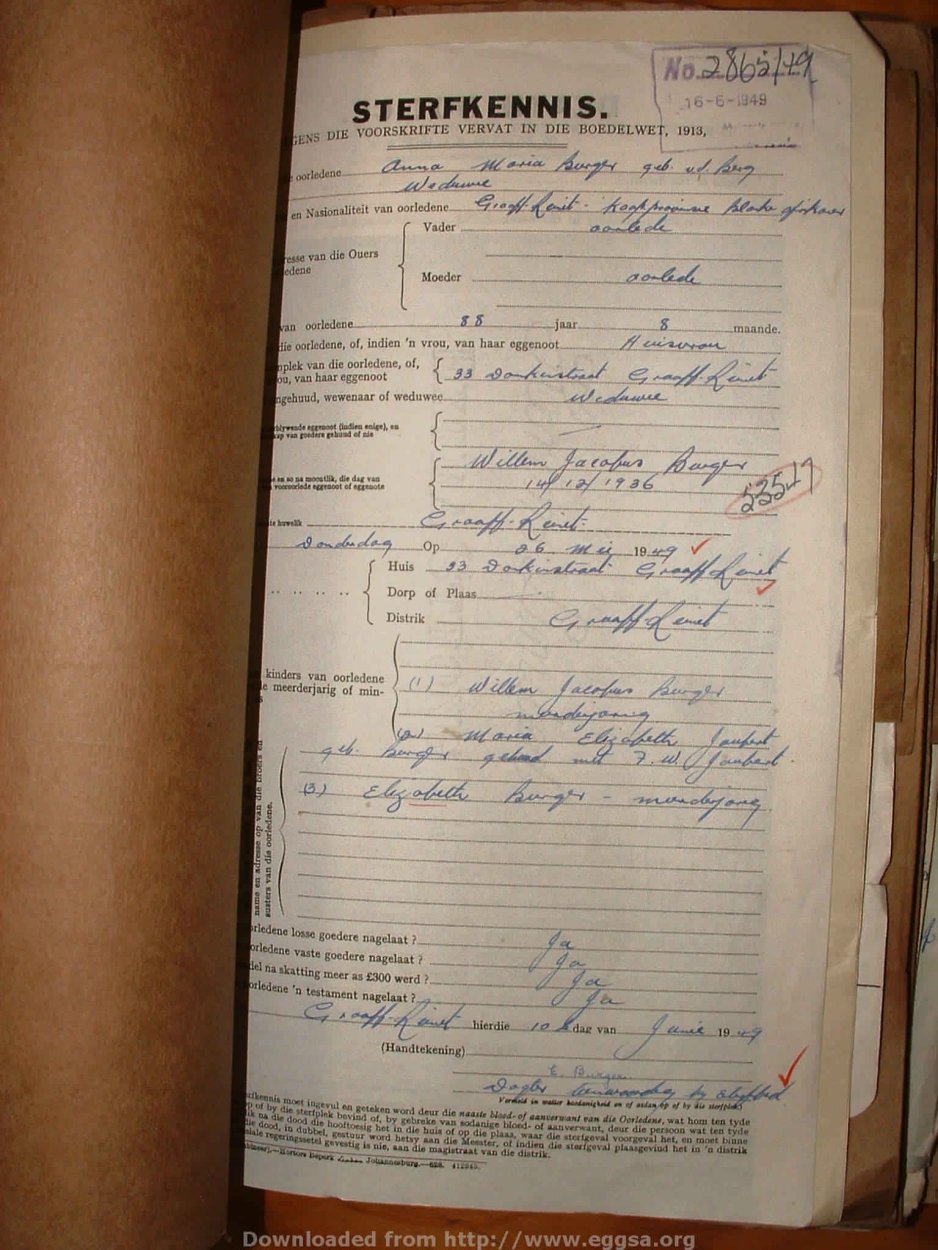 No. 2865/49
16-6-1949
STERFKENNIS.
GENS DIE VOORSKRIFTE VERVAT IN DIE BOEDELWET, 1913,
oorledene Anna Maria Burger geb. v.d. Berg
Weduwee
en Nasionaliteit van oorledene Graaff-Reinet - Kaapprovinsie Blanke Afrikaner
Vader oorlede
resse van die Ouers
edene
Moeder oorlede
van oorledene 88 jaar 8 maande.
die oorledene, of, indien 'n vrou, van haar eggenoot Huisvrou
nplek van die oorledene, of,
ou, van haar eggenoot 33 Donkinstraat Graaff-Reinet
ngehuud, wewenaar of weduwee Weduwee
rblywende eggenoot (indien enige), en
kap van goedere gehuud of nie
Willem Jacobus Burger
e en so na moontlik, die dag van 14/12/1936
vooroorlede eggenoot of eggenote
5354
te huwelik Graaff-Reinet
Donderdag Op 26 Mei 1949
Huis 33 Donkinstraat Graaff Reinet
Dorp of Plaas
Distrik Graaff-Reinet
kinders van oorledene
e meerderjarig of min-
(1) Willem Jacobus Burger
meerderjarig
(2) Maria Elizabeth Joubert
geb. Burger gehuud met F. W. Joubert.
(3) Elizabeth Burger - meerderjarig
name en adresse op van die broers en
susters van die oorledene.
orledene losse goedere nagelaat ? Ja
orledene vaste goedere nagelaat ? Ja
del na skatting meer as £300 werd ? Ja
orledene 'n testament nagelaat ? Ja
Graaff-Reinet hierdie 10 dag van Junie 1949
(Handtekening)
E. Burger
Dogter teenwoordig by sterfbed
Vermeld in watter hoedanigheid en of aldan op of by die sterfplek
rfkennis moet ingevul en geteken word deur die naaste bloed- of aanverwant van die Oorledene, wat hom ten tyde
p of by die sterfplek bevind of, by gebreke van sodanige bloed- of aanverwant, deur die persoon wat ten tyde
k na die dood die hooftoesig het in die huis of op die plaas, waar die sterfgeval voorgeval het, en moet binne
die dood, in dubbel, gestuur word hetsy aan die Meester, of indien die sterfgeval plaasgevind het in 'n distrik
siale regeringssetel gevestig is nie, aan die magistraat van die distrik.
Hortors Beperk Johannesburg.—628. 412945.
Downloaded from http://www.eggsa.org